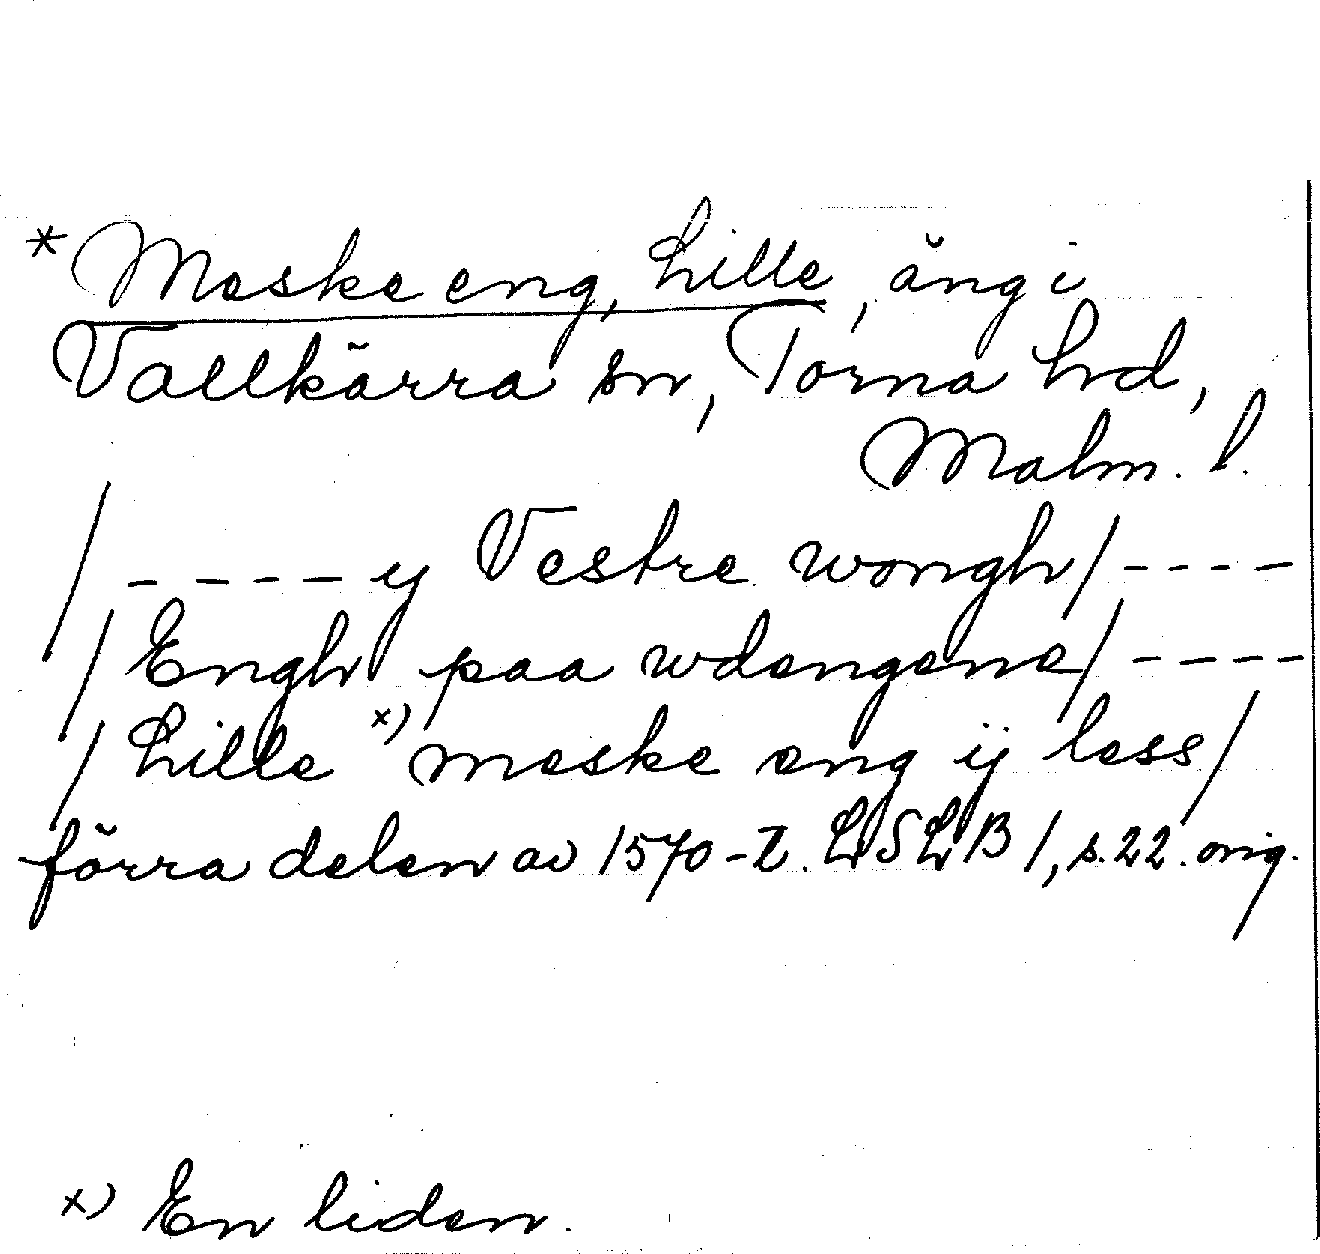 * Meske eng, Lille, äng i
Vallkärra sn, Torna hd,
Malm. l.
/ - - - - y Vestre wongh / - - - -
/ Engh paa wdengene / - - - -
/ Lille x) meske eng ij less /
förra delen av 1570-t. LSLB 1, s. 22. orig.
x) En liden.